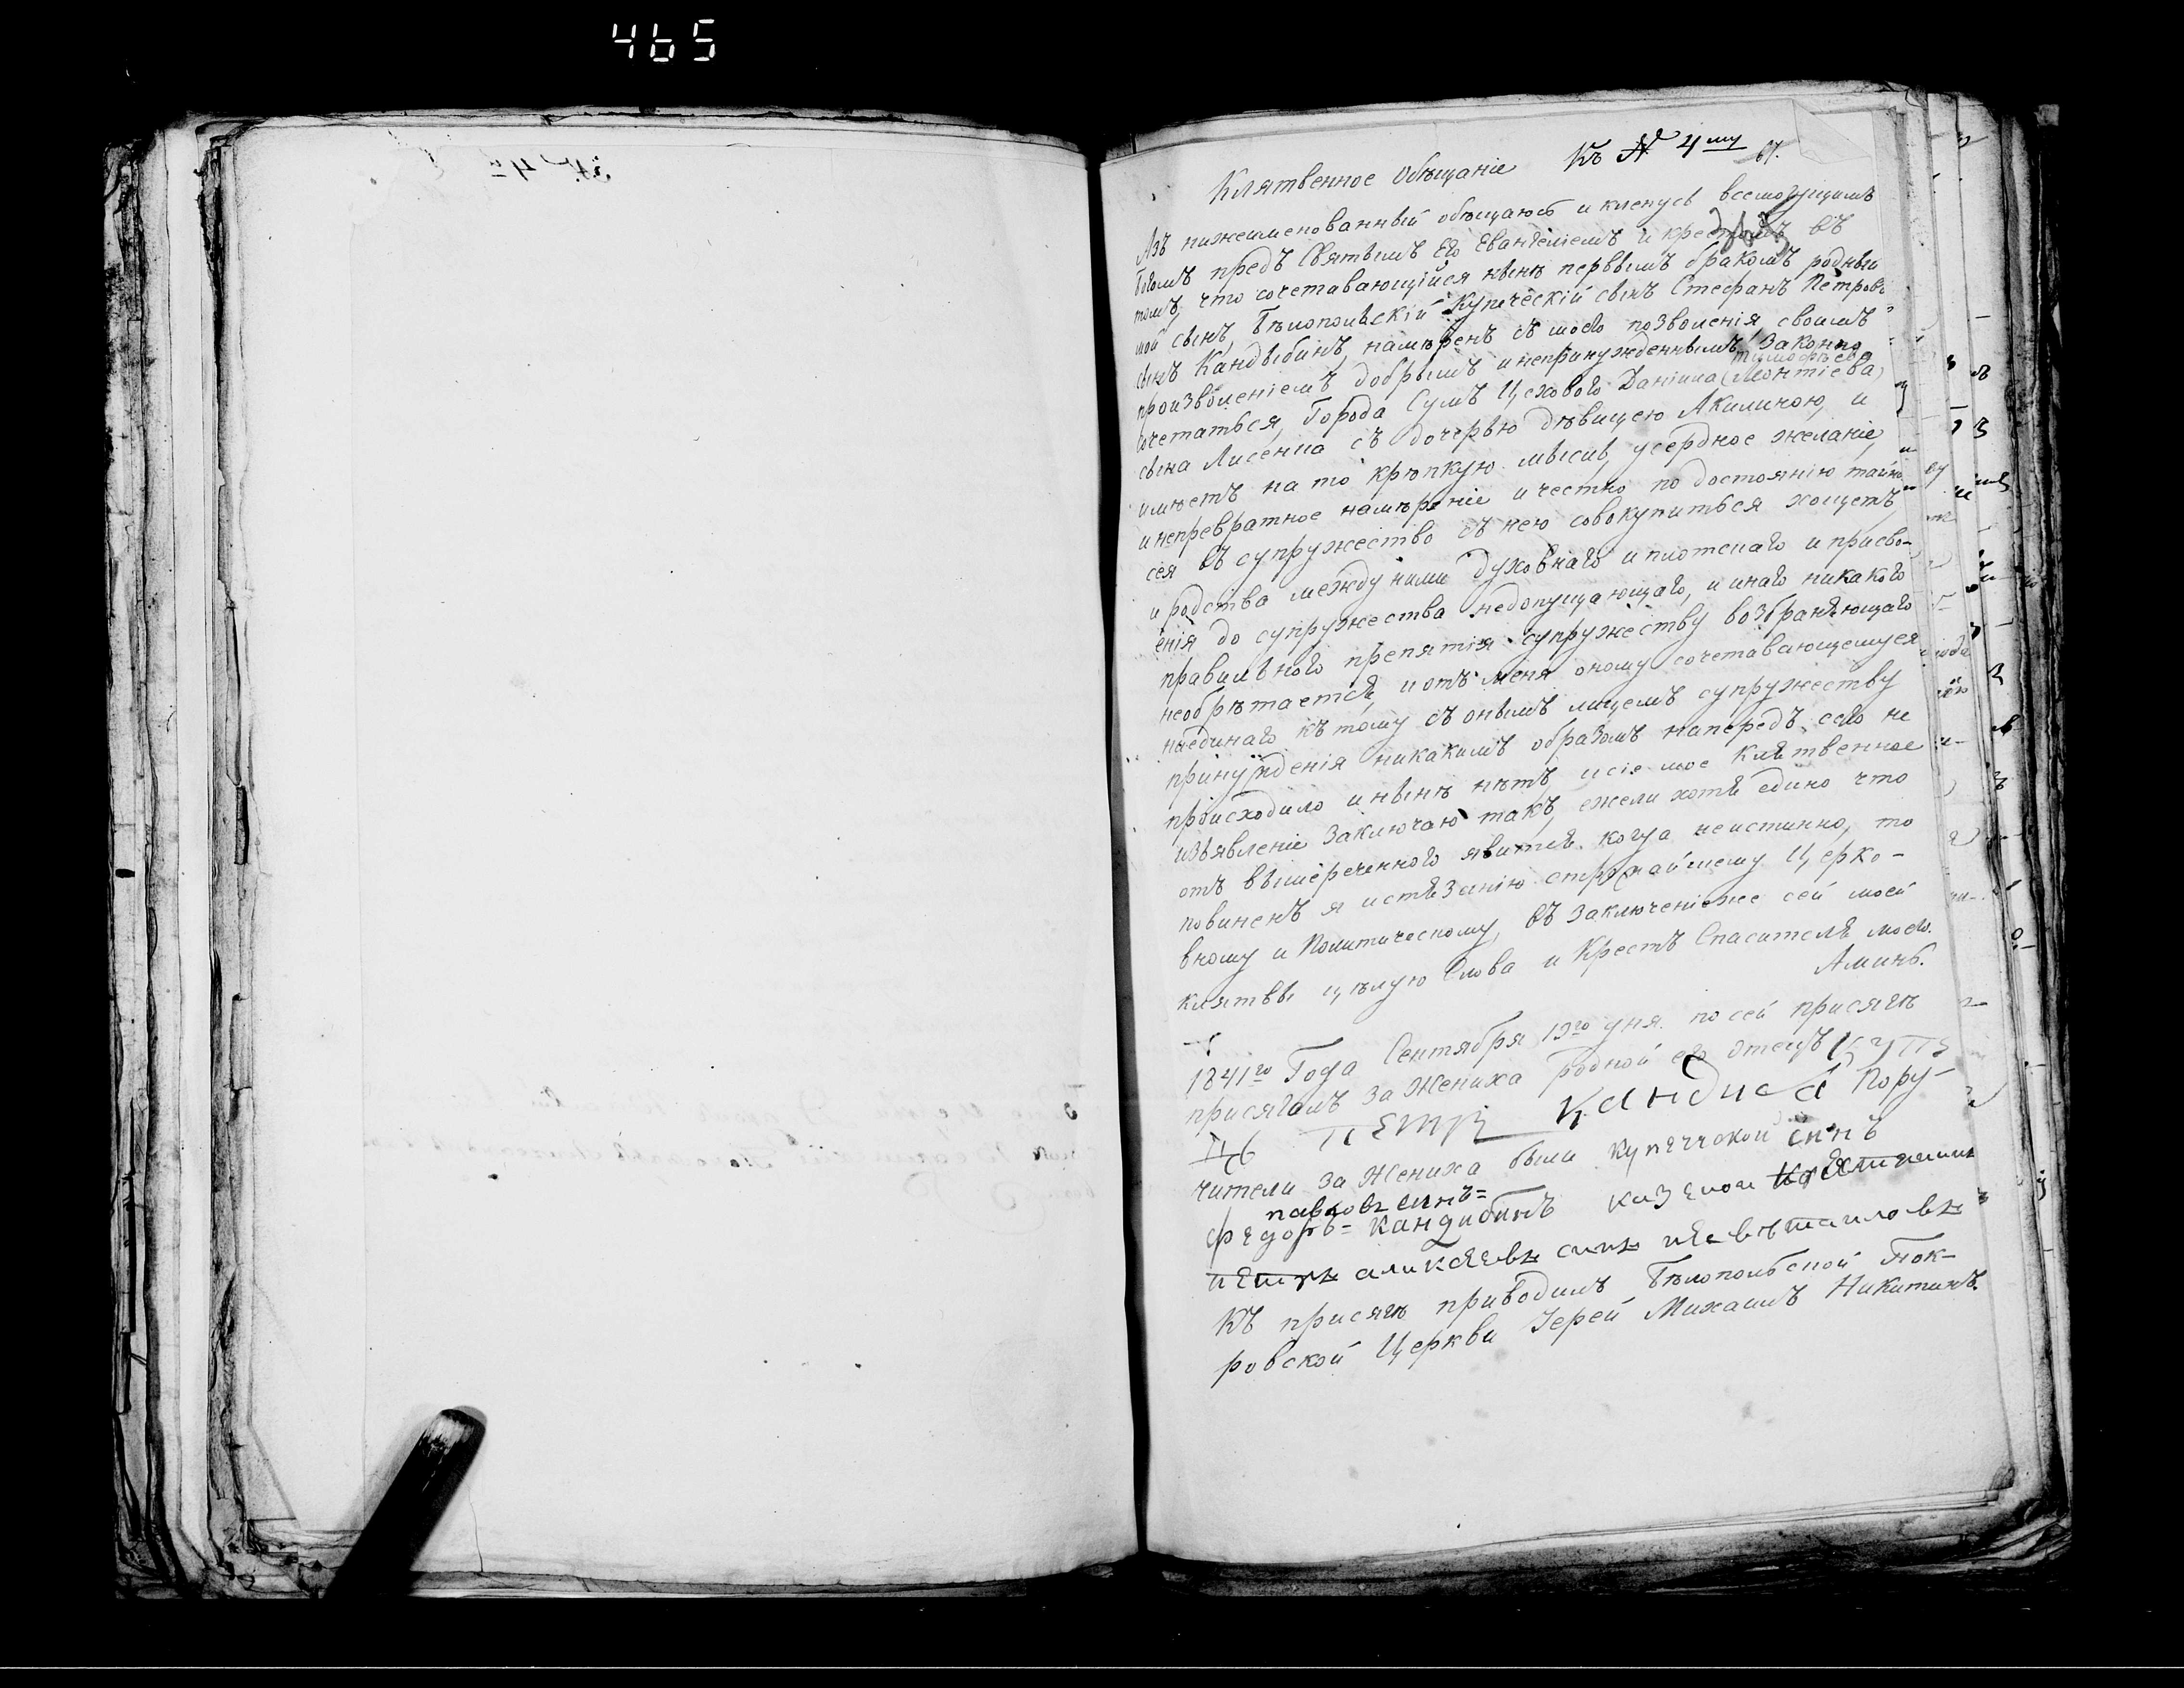 465
Къ № 4му
67.
Клятвенное Обѣщаніе
Азъ нижеименованный обѣщаюсь и кленусь всемогущимъ
богомъ предъ Святымъ Его Евангеліемъ и крестомъ въ
томъ, что сочетавающійся нынѣ первымъ бракомъ родный
мой сынъ, Бѣлопольскій Купеческій сынъ Стефанъ Петровъ
сынъ Кандыбинъ, намѣренъ съ моего позволенія своимъ
произволеніемъ добрымъ и непринужденнымъ, Законно
Тимофѣева
сочетаться, Города Сумъ Цеховаго Даніила (Леонтіева)
сына Лисенка съ дочерью дѣвицею Акилиною, и
имѣетъ на то крѣпкую мысль, усердное желаніе,
и непревратное намѣреніе и честно по достоянію тайны
сея въ супружество съ нею совокупиться хощетъ,
и родства между ними духовнаго и плотскаго и присво-
енія до супружества недопущающаго, и инаго никакого
правильного препятія супружеству возбраняющаго
необрѣтается, и отъ меня оному сочетавающемуся
ниединаго къ тому съ онымъ лицемъ супружеству
принужденія никакимъ образомъ напередъ сего не
происходило и нынѣ нѣтъ, и сіе мое клятвенное
изъявленіе заключаю такъ, ежели хотя едино что
отъ вышереченного явится когда неистинно, то
повиненъ я истязанію строжайшему Церко-
вному и Политическому, въ заключеніеже сей моей
клятвы цѣлую Слова и Крестъ Спасителя моего.
Аминь.
1841го Года Сентября 19го дня. по сей присягѣ
присягалъ за Жениха родной его отецъ КУП
Петръ Кандиба Пору-
чители за Жениха были купѣческой синъ
павловъ синъ=
Федоръ= Кандибинъ казеной крестянинъ
петръ аликсѣевъ синъ
Къ присягѣ приводилъ Бѣлопольской Пок-
ровской Церкви Іерей Михаилъ Никитинъ.